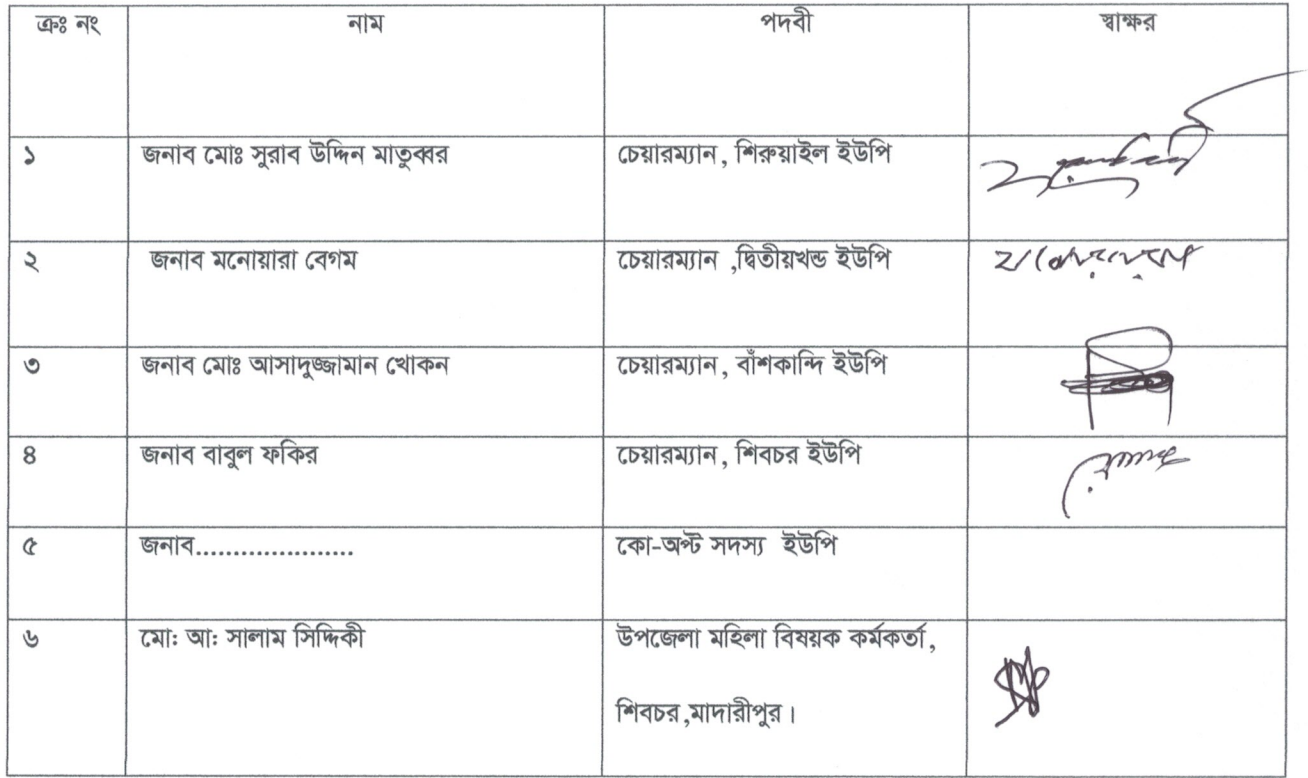 ক্রঃ নং নাম পদবী স্বাক্ষর
১ জনাব মোঃ সুরাব উদ্দিন মাতুব্বর চেয়ারম্যান, শিরুয়াইল ইউপি
২ জনাব মনোয়ারা বেগম চেয়ারম্যান ,দ্বিতীয়খন্ড ইউপি
৩ জনাব মোঃ আসাদুজ্জামান খোকন চেয়ারম্যান, বাঁশকান্দি ইউপি
৪ জনাব বাবুল ফকির চেয়ারম্যান, শিবচর ইউপি
৫ জনাব..................... কো-অপ্ট সদস্য ইউপি
৬ মো: আ: সালাম সিদ্দিকী উপজেলা মহিলা বিষয়ক কর্মকর্তা,
শিবচর,মাদারীপুর।